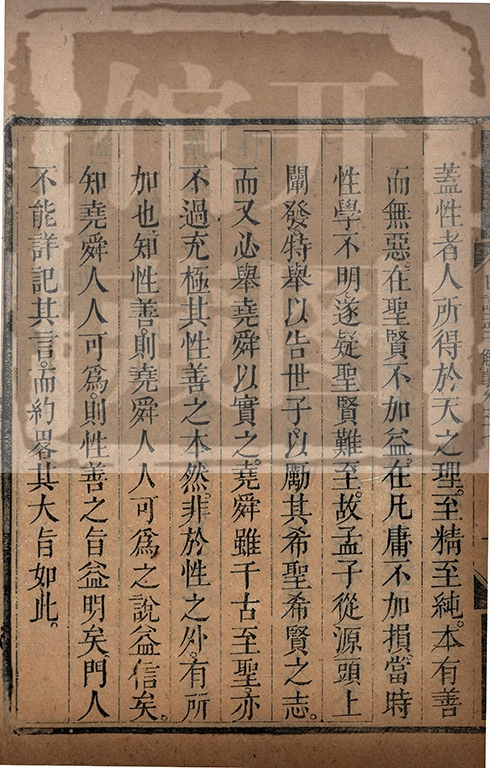 蓋性者人所得於天之理。至精至純。本有善
而無惡。在聖賢不加益。在凡庸不加損當時
性學不明。遂疑聖賢難至。故孟子從源頭上
闡發。特舉以告世子。以勵其希聖希賢之志。
而又必舉堯舜以實之。堯舜雖千古至聖。亦
不過充極其性善之本然。非於性之外。有所
加也。知性善。則堯舜人人可為之說益信矣。
知堯舜人人可為。則性善之旨益明矣門人
不能詳記其言。而約畧其大旨如此。